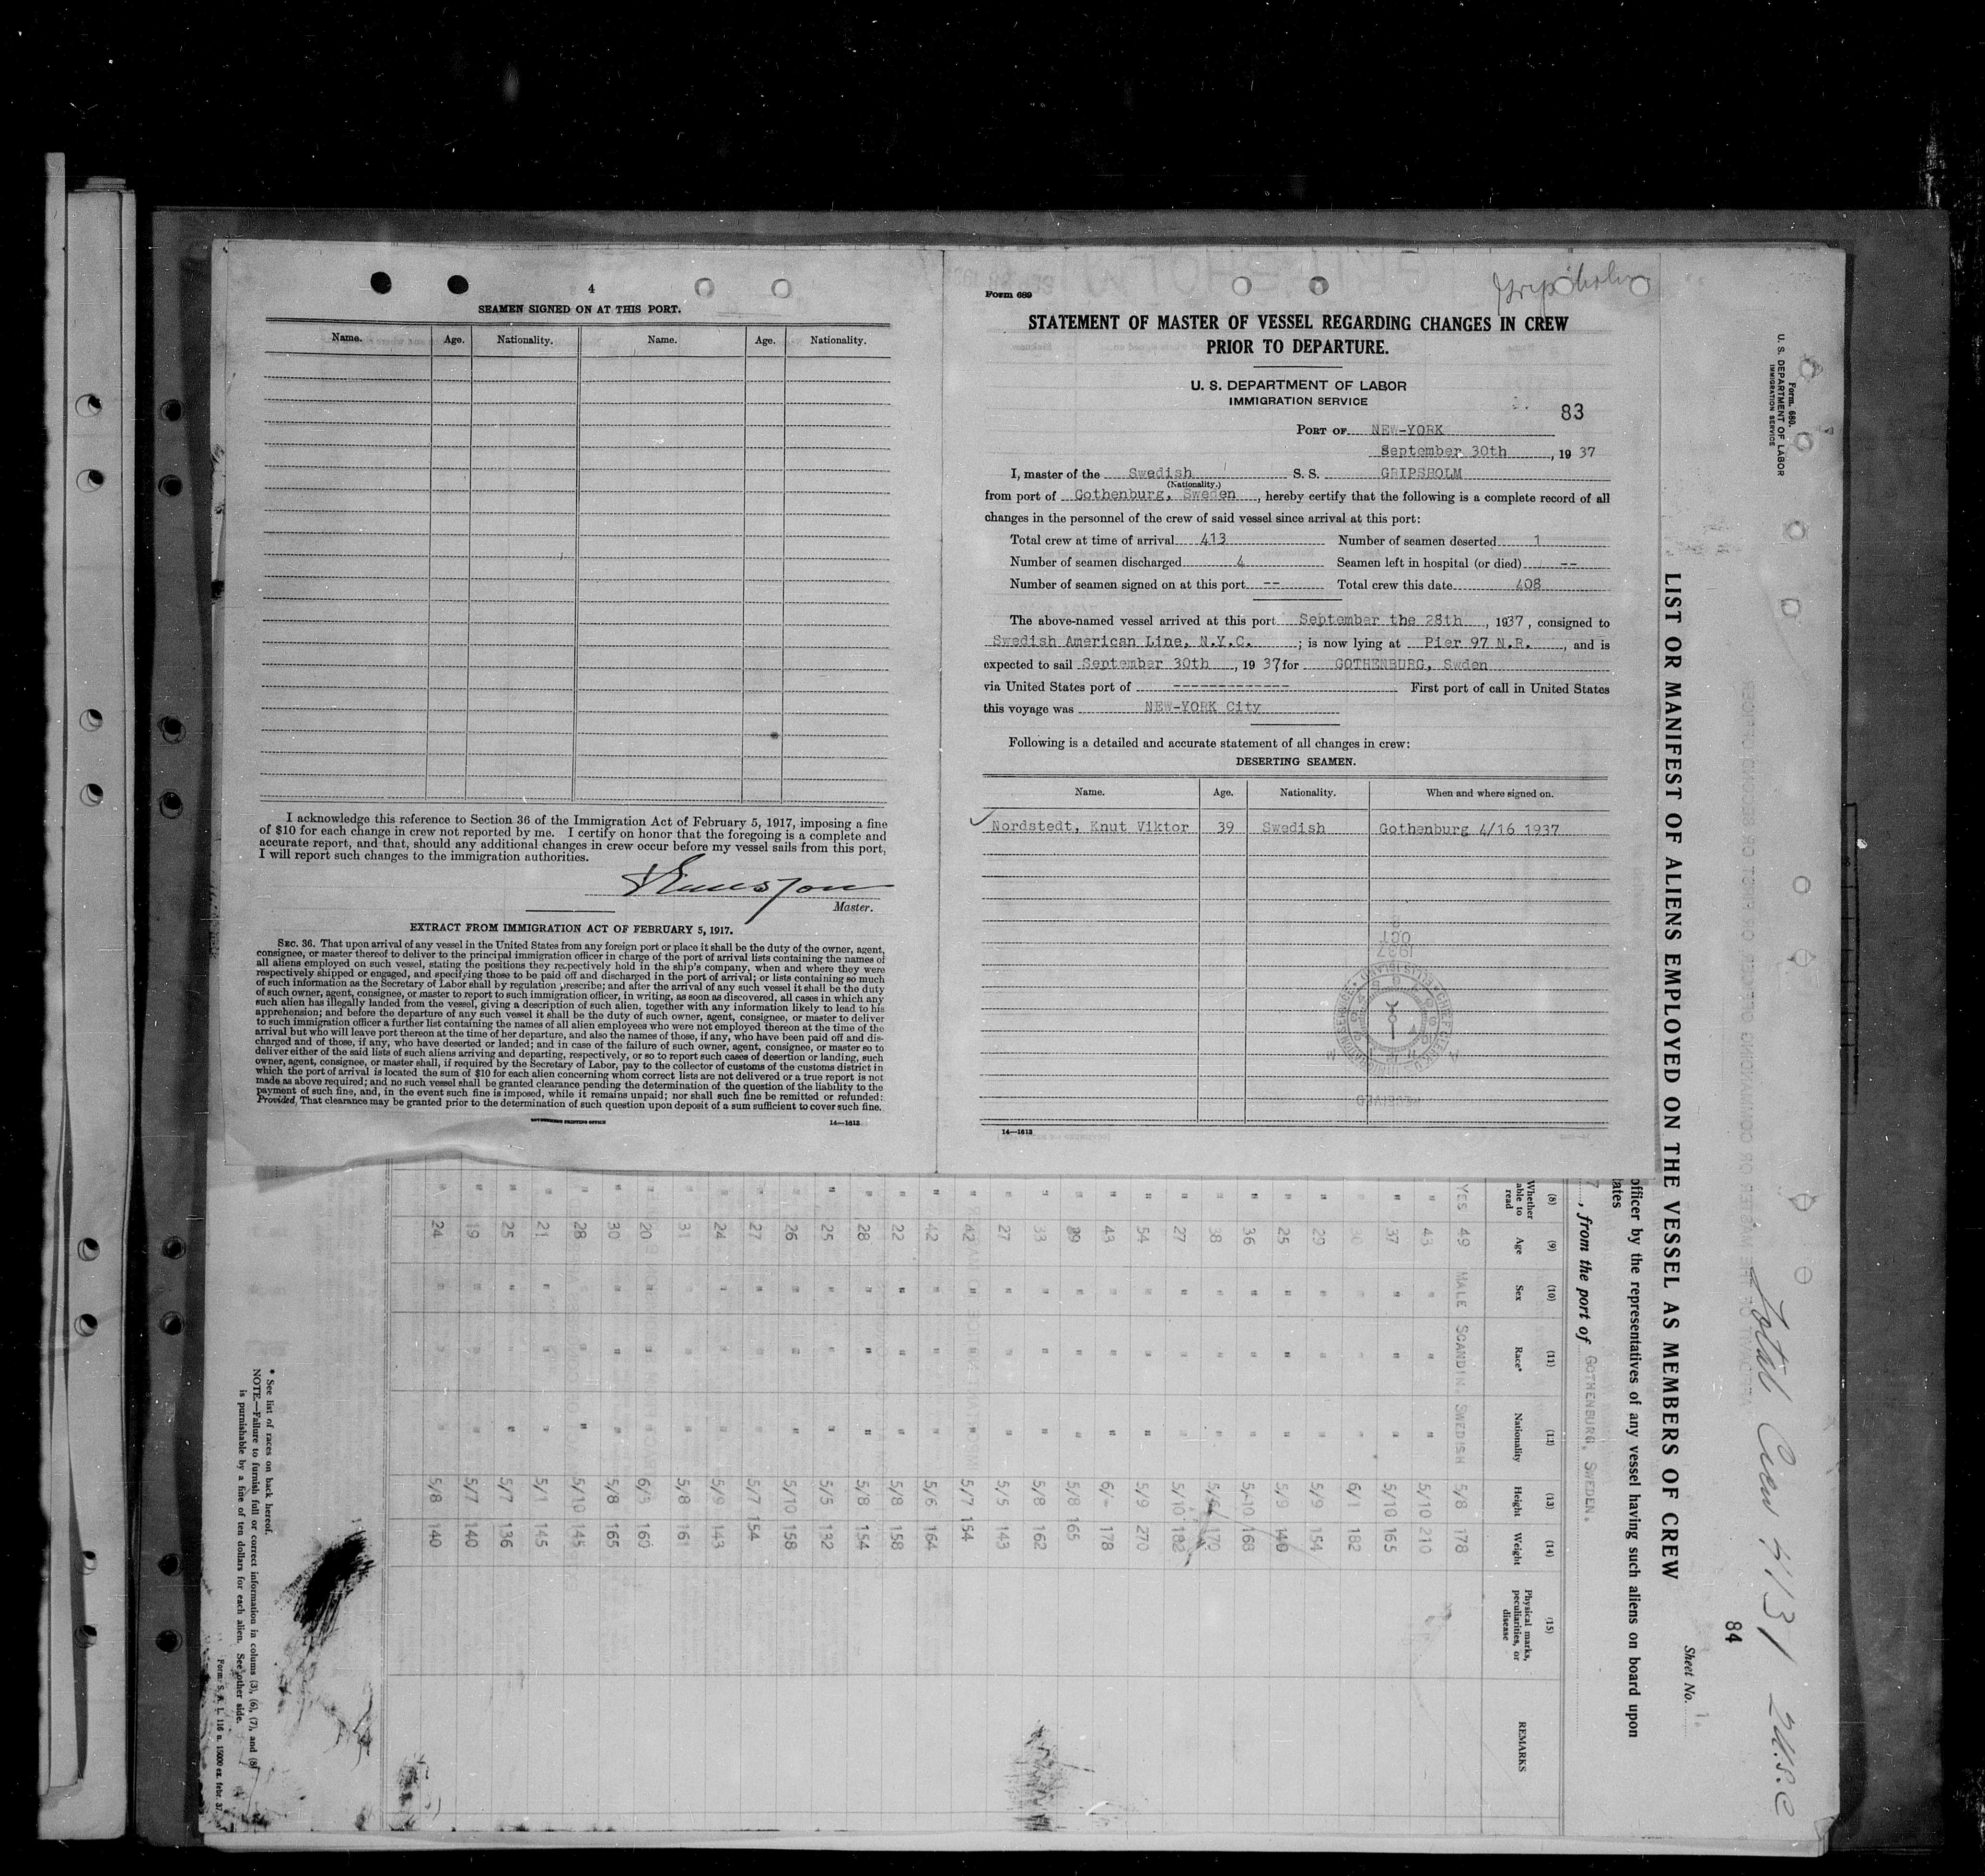 4
SEAMEN SIGNED ON AT THIS PORT.
Name. Age. Nationality. Name. Age. Nationality.
I acknowledge this reference to Section 36 of the Immigration Act of February 5, 1917, imposing a fine
of $10 for each change in crew not reported by me. I certify on honor that the foregoing is a complete and
accurate report, and that, should any additional changes in crew occur before my vessel sails from this port,
I will report such changes to the immigration authorities.
Master.
EXTRACT FROM IMMIGRATION ACT OF FEBRUARY 5, 1917.
SEC. 36. That upon arrival of any vessel in the United States from any foreign port or place it shall be the duty of the owner, agent,
consignee, or master thereof to deliver to the principal immigration officer in charge of the port of arrival lists containing the names of
all aliens employed on such vessel, stating the positions they respectively hold in the ship's company, when and where they were
respectively shipped or engaged, and specifying those to be paid off and discharged in the port of arrival; or lists containing so much
of such information as the Secretary of Labor shall by regulation prescribe; and after the arrival of any such vessel it shall be the duty
of such owner, agent, consignee, or master to report to such immigration officer, in writing, as soon as discovered, all cases in which any
such alien has illegally landed from the vessel, giving a description of such alien, together with any information likely to lead to his
apprehension; and before the departure of any such vessel it shall be the duty of such owner, agent, consignee, or master to deliver
to such immigration officer a further list containing the names of all alien employees who were not employed thereon at the time of the
arrival but who will leave port thereon at the time of her departure, and also the names of those, if any, who have been paid off and dis-
charged and of those, if any, who have deserted or landed; and in case of the failure of such owner, agent, consignee, or master so to
deliver either of the said lists of such aliens arriving and departing, respectively, or so to report such cases of desertion or landing, such
owner, agent, consignee, or master shall, if required by the Secretary of Labor, pay to the collector of customs of the customs district in
which the port of arrival is located the sum of $10 for each alien concerning whom correct lists are not delivered or a true report is not
made as above required; and no such vessel shall be granted clearance pending the determination of the question of the liability to the
payment of such fine, and, in the event such fine is imposed, while it remains unpaid; nor shall such fine be remitted or refunded:
Provided, That clearance may be granted prior to the determination of such question upon deposit of a sum sufficient to cover such fine.
GOVERNMENT PRINTING OFFICE 14—1613
Form 689
Gripsholm
STATEMENT OF MASTER OF VESSEL REGARDING CHANGES IN CREW
PRIOR TO DEPARTURE.
U. S. DEPARTMENT OF LABOR
IMMIGRATION SERVICE
83
PORT OF NEW-YORK
September 30th, 1937
I, master of the Swedish S. S. GRIPSHOLM
(Nationality.)
from port of Gothenburg, Sweden, hereby certify that the following is a complete record of all
changes in the personnel of the crew of said vessel since arrival at this port:
Total crew at time of arrival 413 Number of seamen deserted 1
Number of seamen discharged 4 Seamen left in hospital (or died) --
Number of seamen signed on at this port -- Total crew this date 408
The above-named vessel arrived at this port September the 28th, 1937, consigned to
Swedish American Line, N.Y.C. ; is now lying at Pier 97 N.R. , and is
expected to sail September 30th, 1937 for GOTHENBURG, Swden
via United States port of ------------- First port of call in United States
this voyage was NEW-YORK City
Following is a detailed and accurate statement of all changes in crew:
DESERTING SEAMEN.
Name. Age. Nationality. When and where signed on.
Nordstedt, Knut Viktor 39 Swedish Gothenburg 4/16 1937
RECEIVED
OCT
1937
14—1613
Form. 680.
U. S. DEPARTMENT OF LABOR
IMMIGRATION SERVICE
Total Crew 413
2 U.S.C
84
LIST OR MANIFEST OF ALIENS EMPLOYED ON THE VESSEL AS MEMBERS OF CREW
Sheet No. 1.
officer by the representatives of any vessel having such aliens on board upon
ates
7, from the port of GOTHENBURG, SWEDEN.
(8) (9) (10) (11) (12) (13) (14) (15)
Whether able to read Age Sex Race* Nationality Height Weight Physical marks, peculiarities, or disease REMARKS
YES 49 MALE SCANDIN. SWEDISH 5/8 178
" 43 " " " 5/10 210
" 37 " " " 5/10 165
" " " " 6/1 182
" 29 " " " 5/9 154
" 25 " " " 5/9 140
" 36 " " " 5/10 168
" 38 " " " 170
" 27 " " " 5/10 182
" 54 " " " 5/9 270
" 43 " " " 6/- 178
" 39 " " " 5/8 165
" 33 " " " 5/8 162
" 27 " " " 5/5 143
" 42 " " " 5/7 154
" 42 " " " 5/6 164
" 22 " " " 5/8 158
" 28 " " " 5/8 154
" 25 " " " 5/5 132
" 26 " " " 5/10 158
" 27 " " " 5/7 154
" 24 " " " 5/9 143
" 31 " " " 5/8 161
" 20 " " " 6/3 160
" 30 " " " 5/8 165
" 28 " " " 5/10 145
" 21 " " " 5/1 145
" 25 " " " 5/7 136
" 19 " " " 5/7 140
" 24 " " " 5/8 140
* See list of races on back hereof.
NOTE.—Failure to furnish full or correct information in colums (3), (6), (7), and (8)
is punishable by a fine of ten dollars for each alien. See other side.
Form: S. A. L. 116 a. 15000 ex. febr. 37.